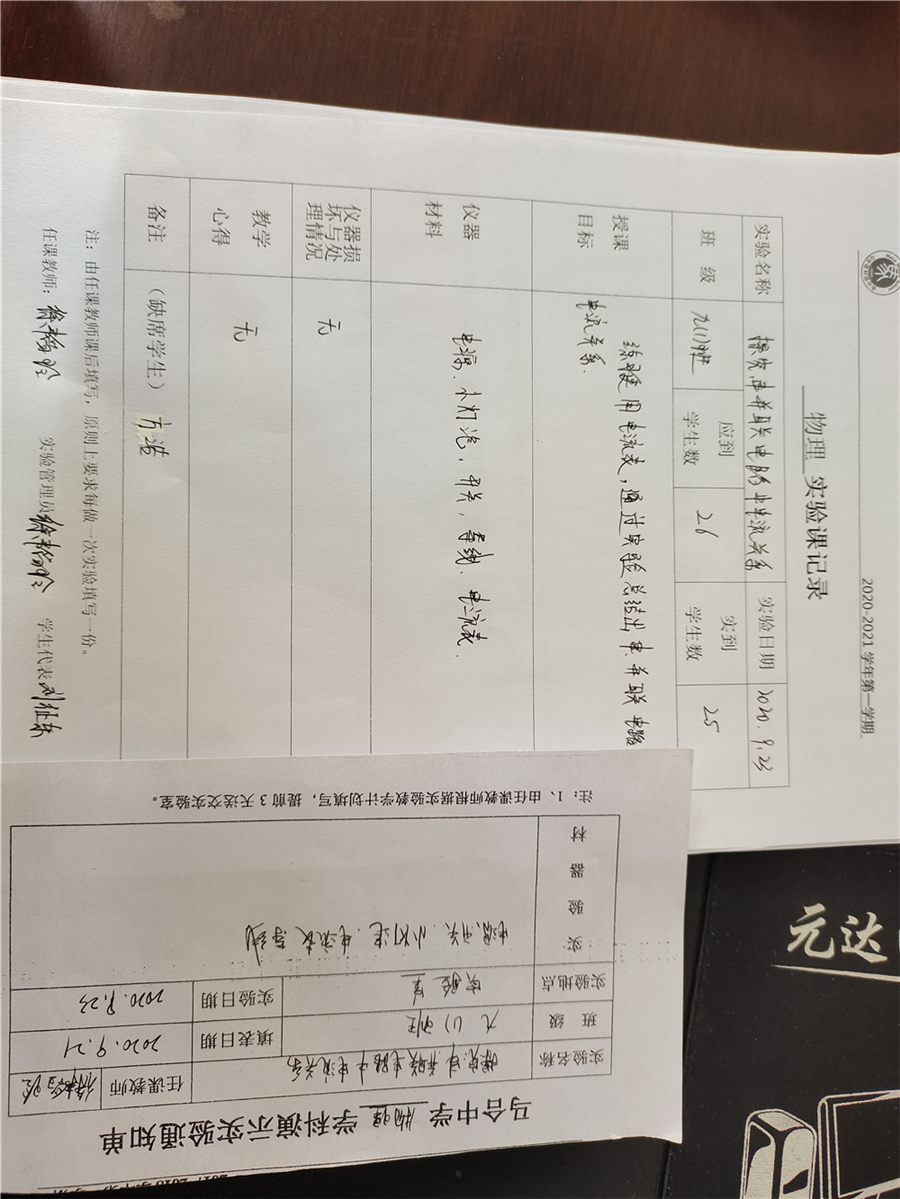 2020-2021 学年第一学期
物理 实验课记录
实验名称 探究串并联电路中电流关系 实验日期 2020.9.23
班 级 九(1)班 应到学生数 26 实到学生数 25
授课目标 练习使用电流表，通过实验总结出串、并联电路
电流关系.
仪器材料 电源、小灯泡，开关，导线、电流表.
仪器损坏与处理情况 无
教学心得 无
备注 （缺席学生） 方浩
注：由任课教师课后填写，原则上要求每做一次实验填写一份。
任课教师： 实验管理员 学生代表 刘征东
马合中学 物理 学科演示实验通知单
实验名称 探究串、并联电路中电流关系 任课教师
班 级 九(1)班 填表日期 2020.9.21
实验地点 实验室 实验日期 2020.9.23
实验器材 电源、开关、小灯泡、电流表、导线
注：1、由任课教师根据实验教学计划填写，提前 3 天送交实验室。
元达